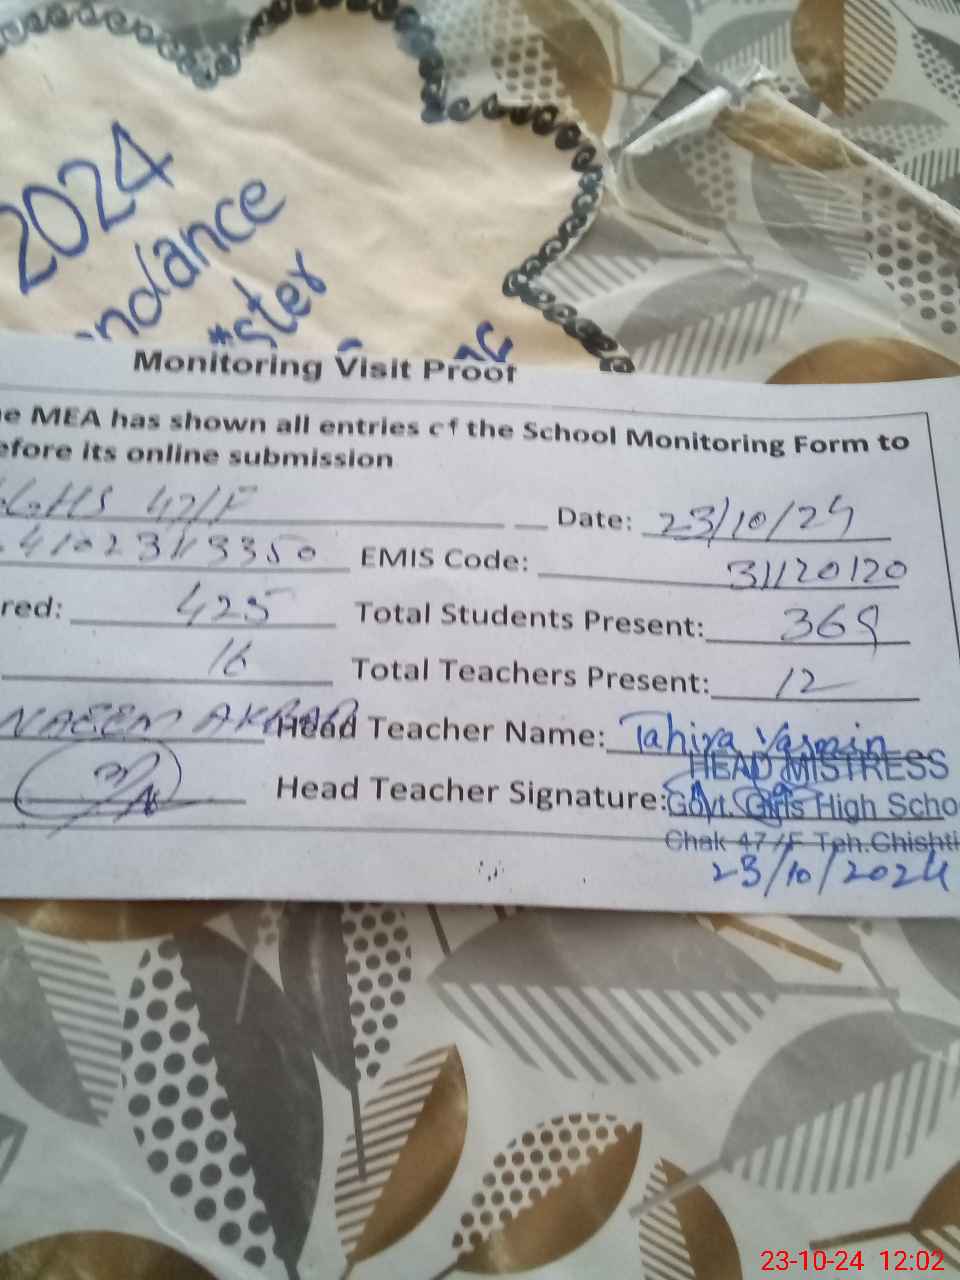 2024
ndance
ster
Monitoring Visit Proof
e MEA has shown all entries of the School Monitoring Form to
efore its online submission
GGHS 47/F Date: 23/10/24
EMIS Code: 31120120
red: 425 Total Students Present: 369
16 Total Teachers Present: 12
NAEEM AKBAR Head Teacher Name: Tahira Yasmin
HEAD MISTRESS
Head Teacher Signature: Govt. Girls High Scho
Chak 47/F Teh.Chishti
23/10/2024
23-10-24 12:02